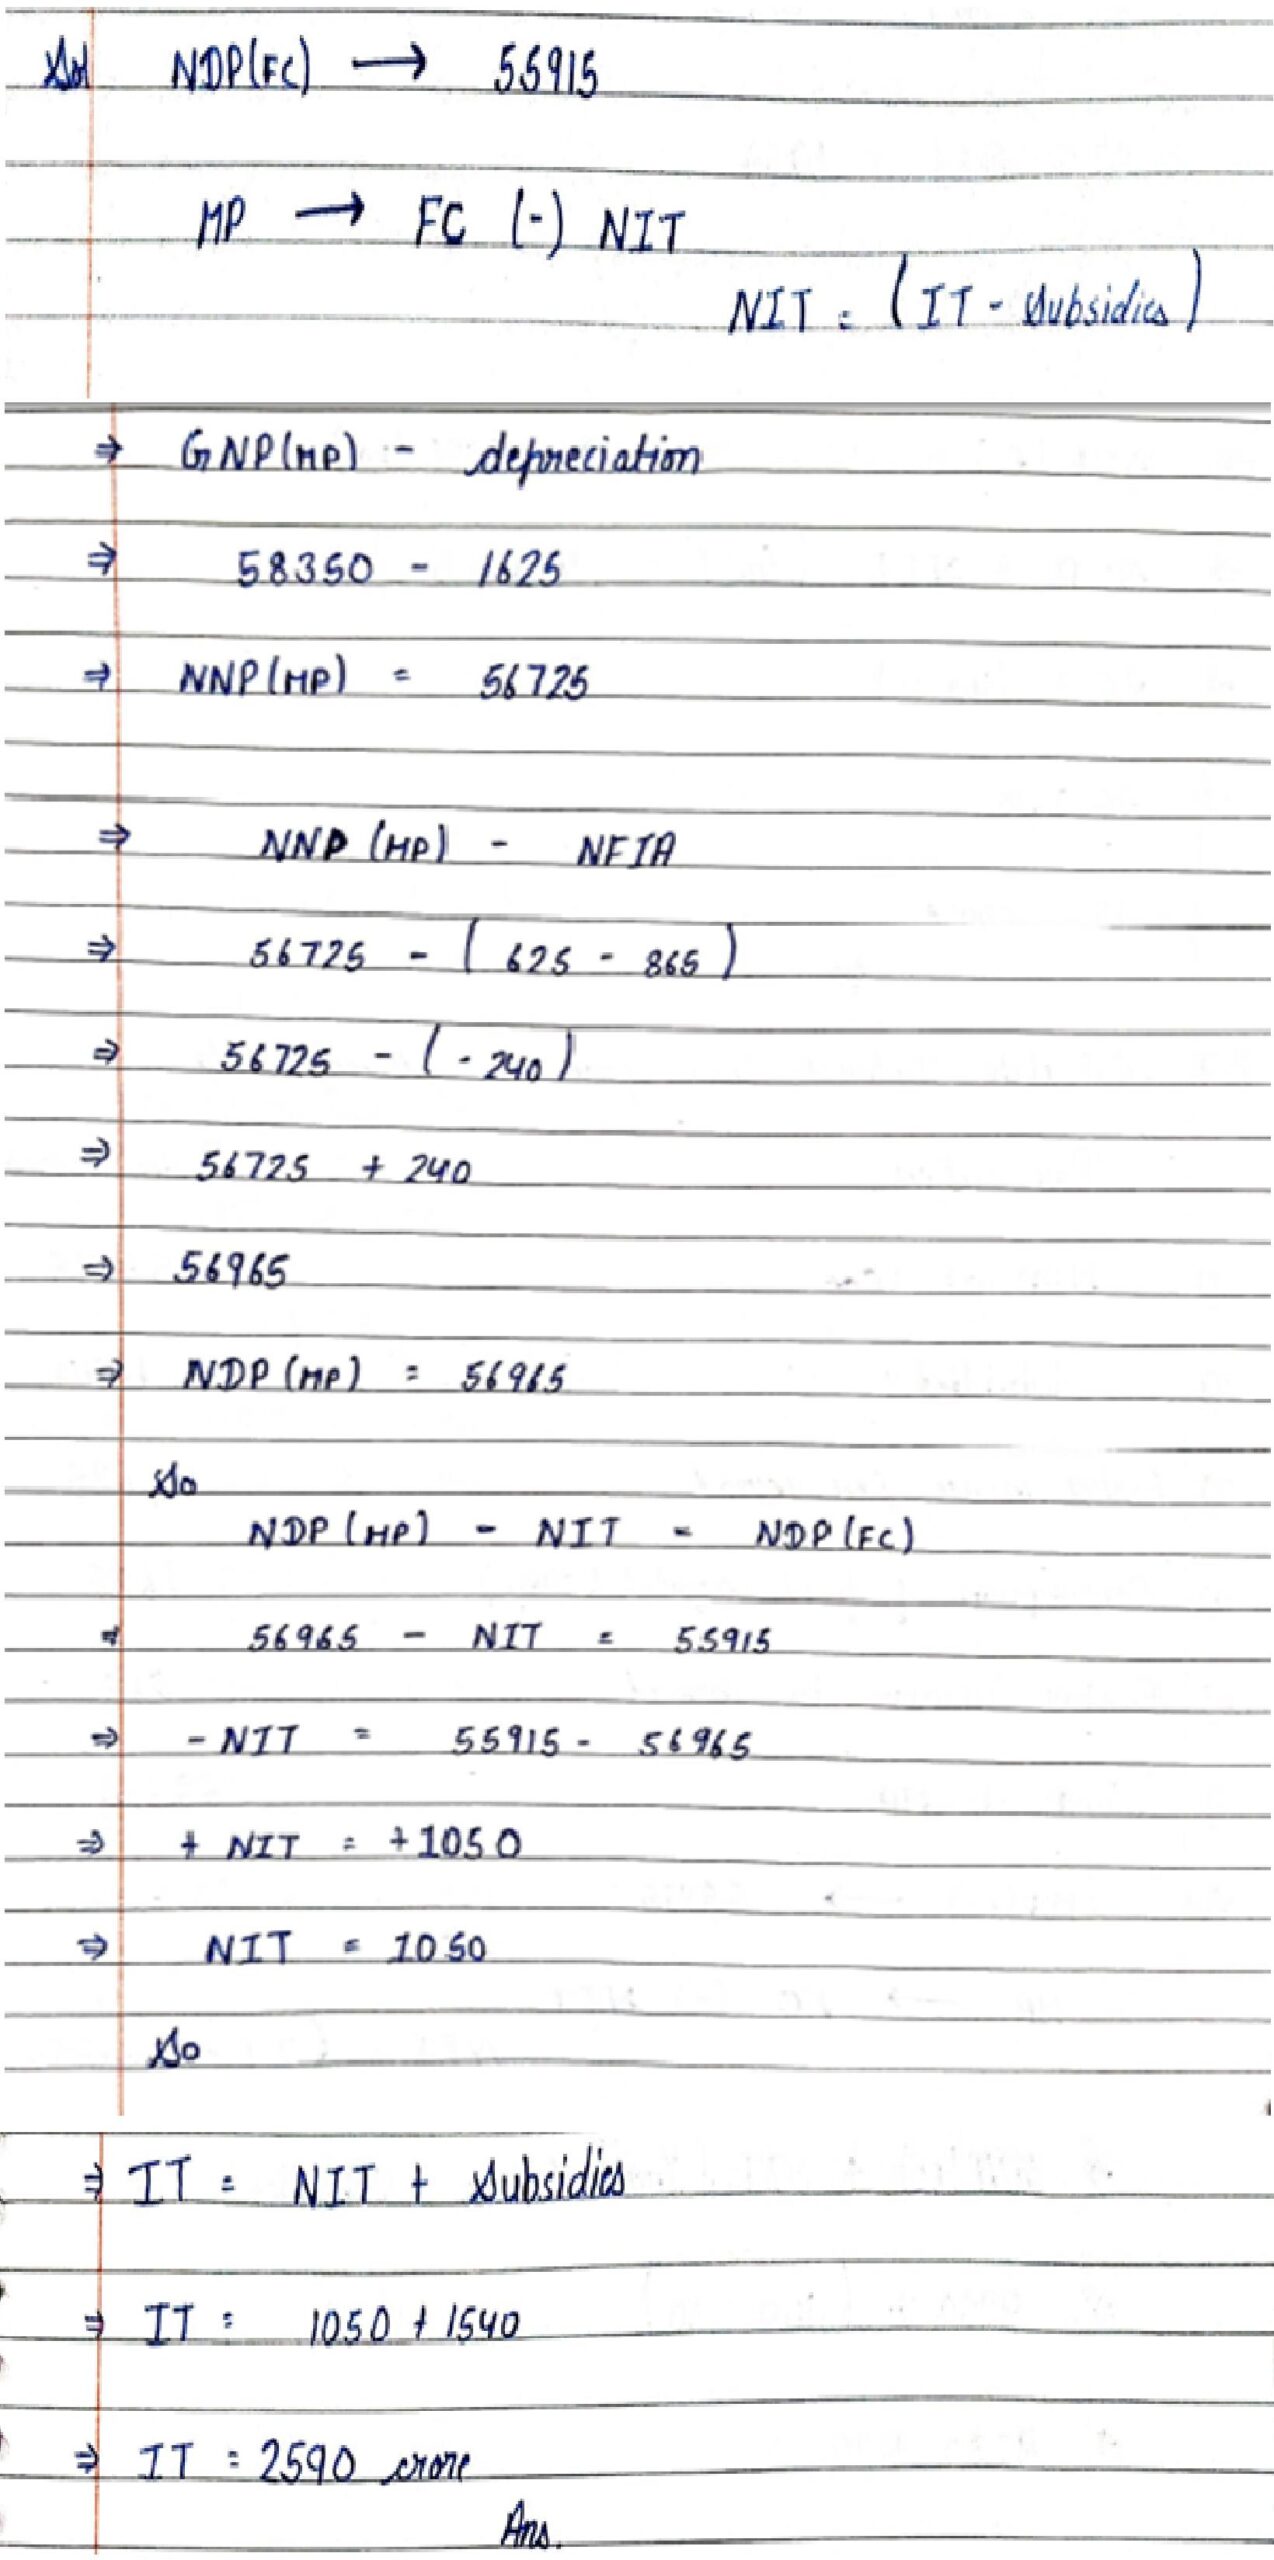 Sol NDP(FC) → 55915
MP → FC (-) NIT
NIT = (IT - Subsidies)
⇒ GNP(MP) - depreciation
⇒ 58350 - 1625
⇒ NNP(MP) = 56725
⇒ NNP (MP) - NFIA
⇒ 56725 - (625 - 865)
⇒ 56725 - (-240)
⇒ 56725 + 240
⇒ 56965
⇒ NDP (MP) = 56965
So
NDP (MP) - NIT = NDP (FC)
⇒ 56965 - NIT = 55915
⇒ - NIT = 55915 - 56965
⇒ + NIT = +1050
⇒ NIT = 1050
So
⇒ IT = NIT + Subsidies
⇒ IT = 1050 + 1540
⇒ IT = 2590 crore
Ans.